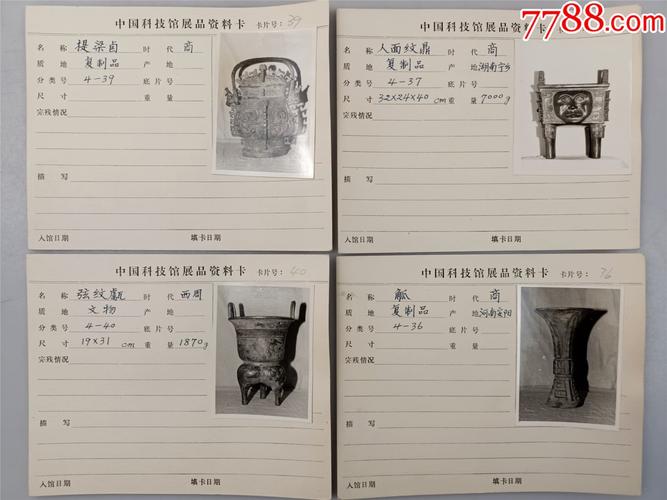 7788.com
中国科技馆展品资料卡 卡片号: 39
名称 提梁卣 时代 商
质地 复制品 产地
分类号 4-39 底片号
尺寸 重量
完残情况
描写
入馆日期 填卡日期
中国科技馆展品资料卡 卡片号:
名称 人面纹鼎 时代 商
质地 复制品 产地 湖南宁乡
分类号 4-37 底片号
尺寸 32×24×40 cm 重量 7000g
完残情况
描写
入馆日期 填卡日期
中国科技馆展品资料卡 卡片号: 40
名称 弦纹甗 时代 西周
质地 文物 产地
分类号 4-40 底片号
尺寸 19×31 cm 重量 1870g
完残情况
描写
入馆日期 填卡日期
中国科技馆展品资料卡 卡片号:
名称 觚 时代 商
质地 复制品 产地 河南安阳
分类号 4-36 底片号
尺寸 重量
完残情况
描写
入馆日期 填卡日期